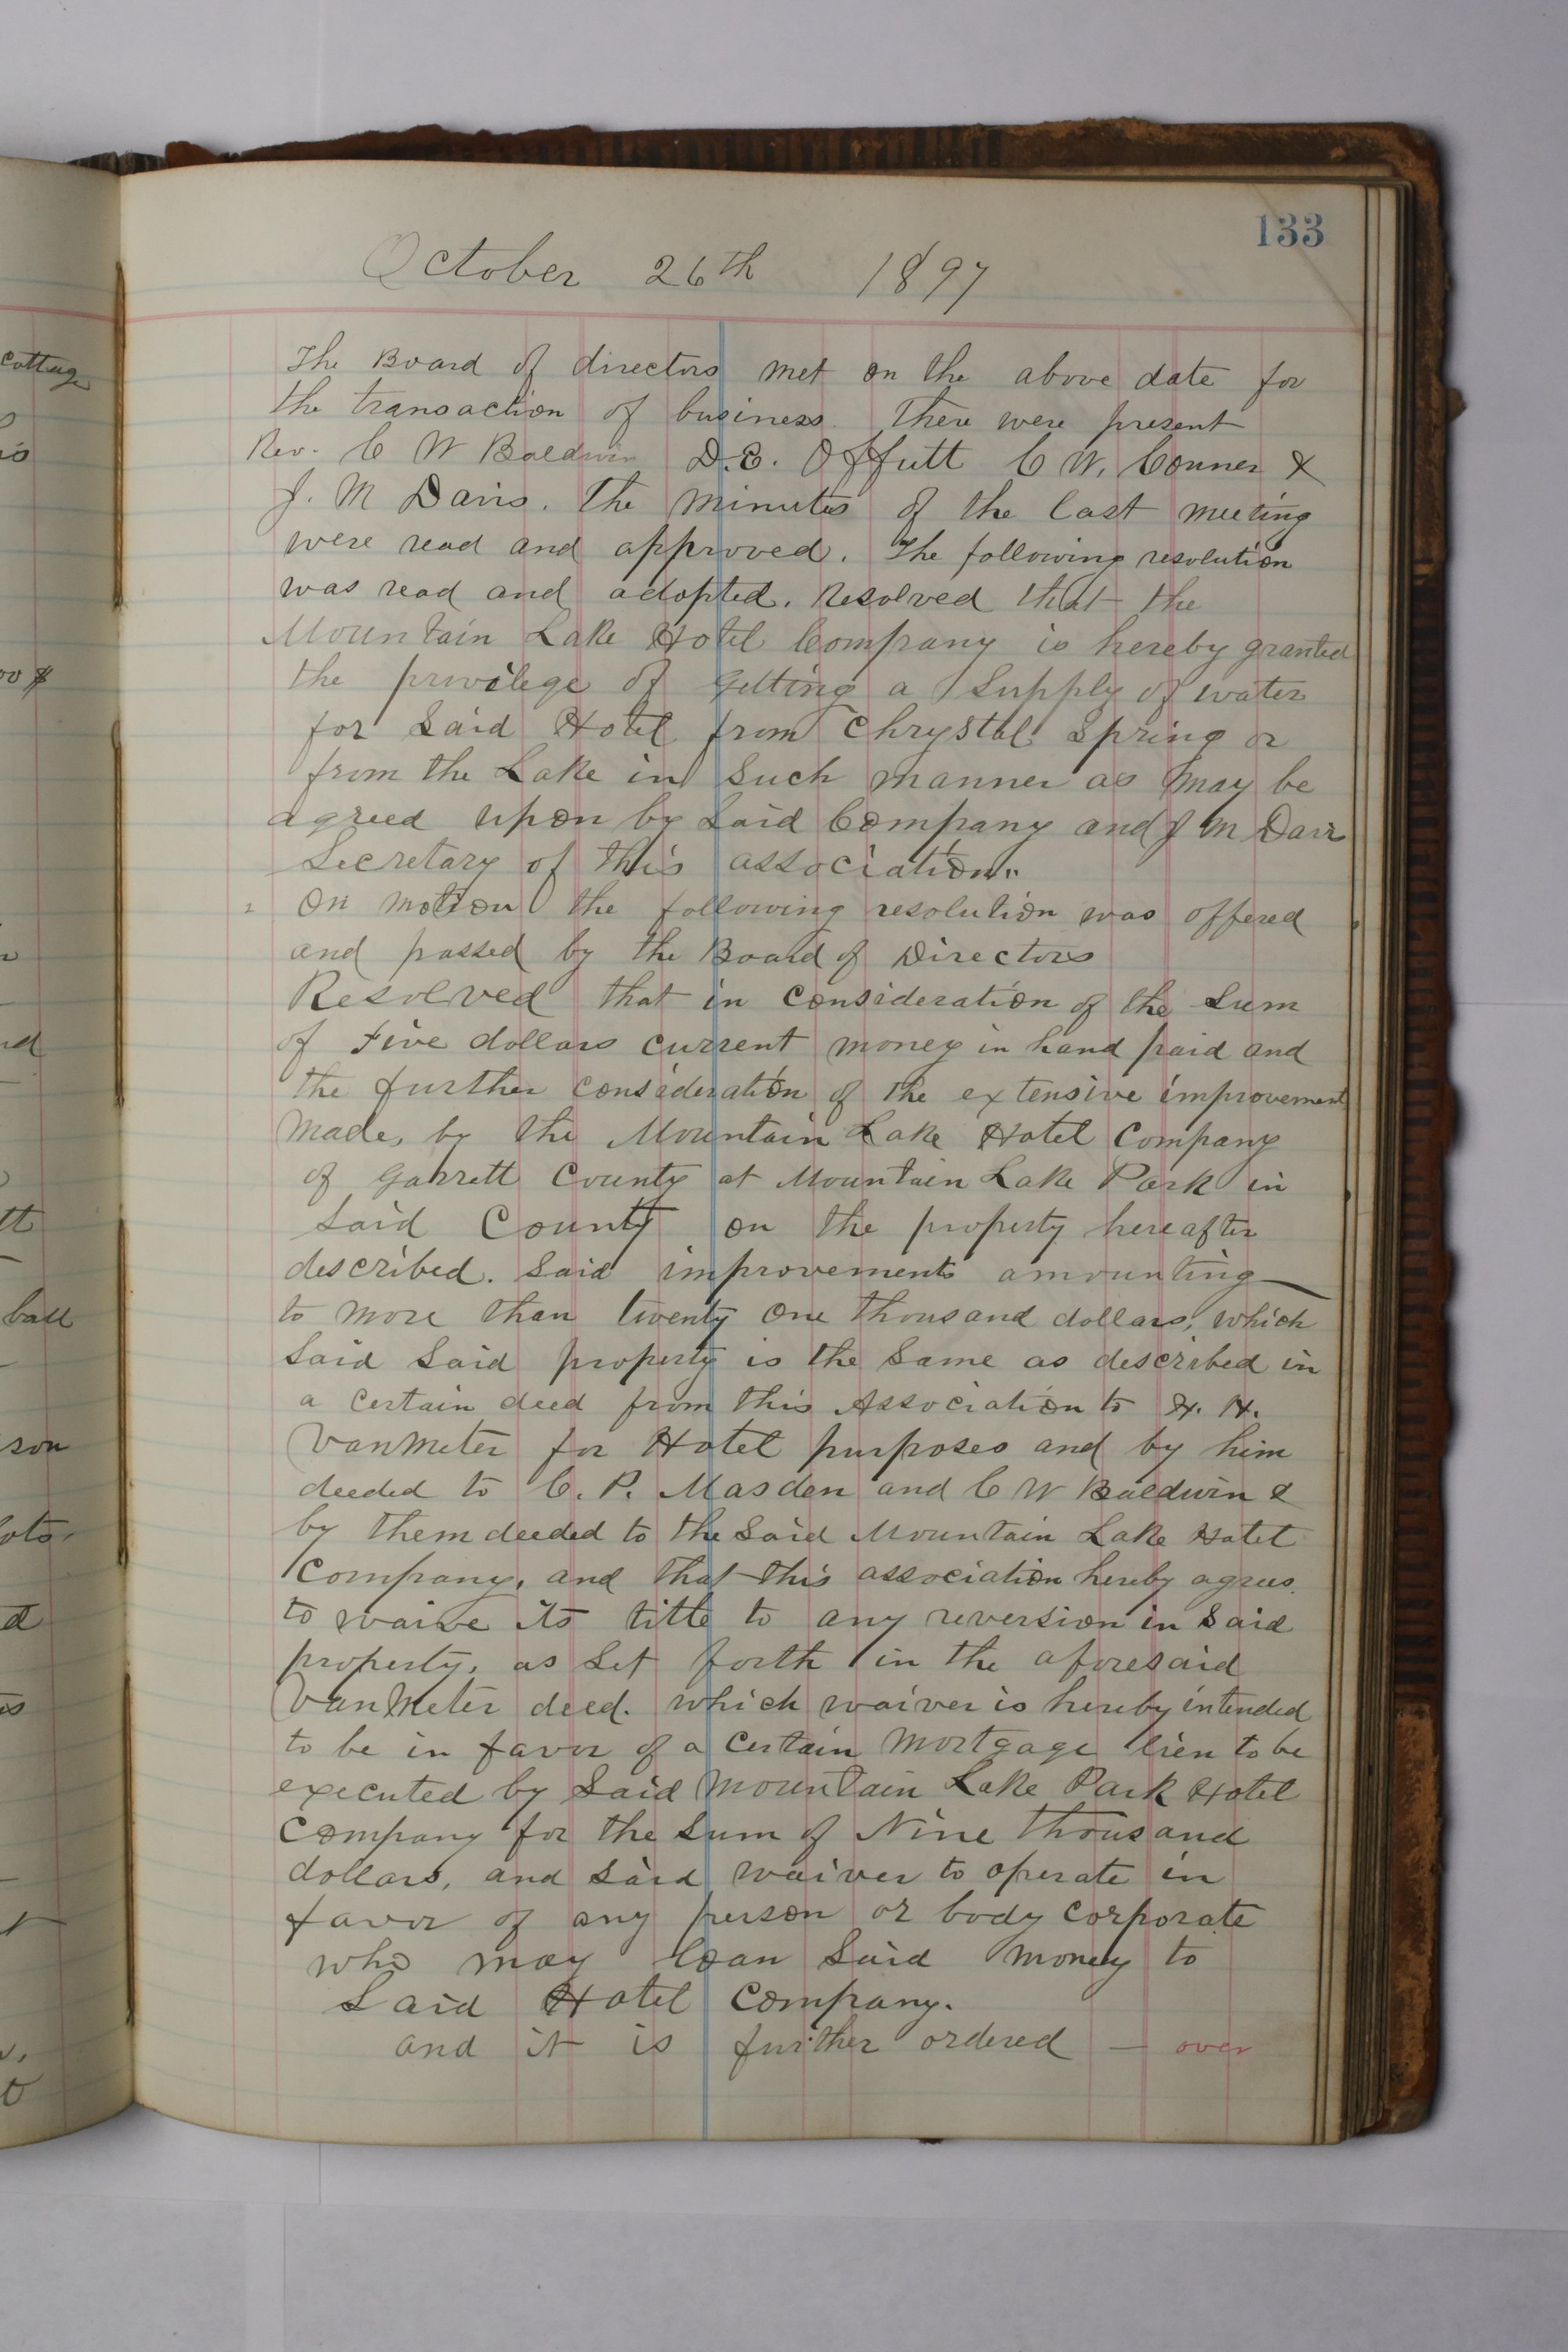 133
October 26th 1897
The Board of directors met on the above date for
the transaction of business. There were present
Rev. C W Baldwin D.E. Offutt C W. Conner &
J. M Davis. The minutes of the last meeting
were read and approved. The following resolution
was read and adopted. Resolved that the
Mountain Lake Hotel Company is hereby granted
the privilege of getting a Supply of water
for Said Hotel from Chrystal Spring or
from the Lake in Such manner as may be
agreed upon by Said Company and J M Davis
Secretary of this association."
On motion the following resolution was offered
and passed by the Board of Directors
Resolved that in consideration of the Sum
of Five dollars current money in hand paid and
the further consideration of the extensive improvement
made, by the Mountain Lake Hotel Company
of Garrett County at Mountain Lake Park in
Said County on the property hereafter
described. Said improvements amounting
to more than twenty one thousand dollars, which
Said Said property is the Same as described in
a certain deed from this Association to H. H.
VanMeter for Hotel purposes and by him
deeded to C. P. Masden and C W Baldwin &
by them deeded to the Said Mountain Lake Hotel
Company, and that this association hereby agrees
to waive its title to any reversion in Said
property, as Set forth in the aforesaid
VanMeter deed. which waiver is hereby intended
to be in favor of a certain Mortgage lien to be
executed by Said Mountain Lake Park Hotel
Company for the Sum of Nine thousand
dollars, and Said waiver to operate in
favor of any person or body corporate
who may loan Said money to
Said Hotel Company.
and it is further ordered — over
cottage
ball
son
lots,